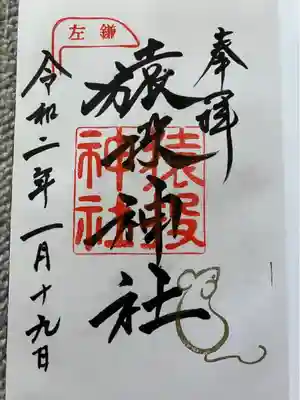 奉拝
左鎌
猿投神社
猿投
神社
令和二年一月十九日